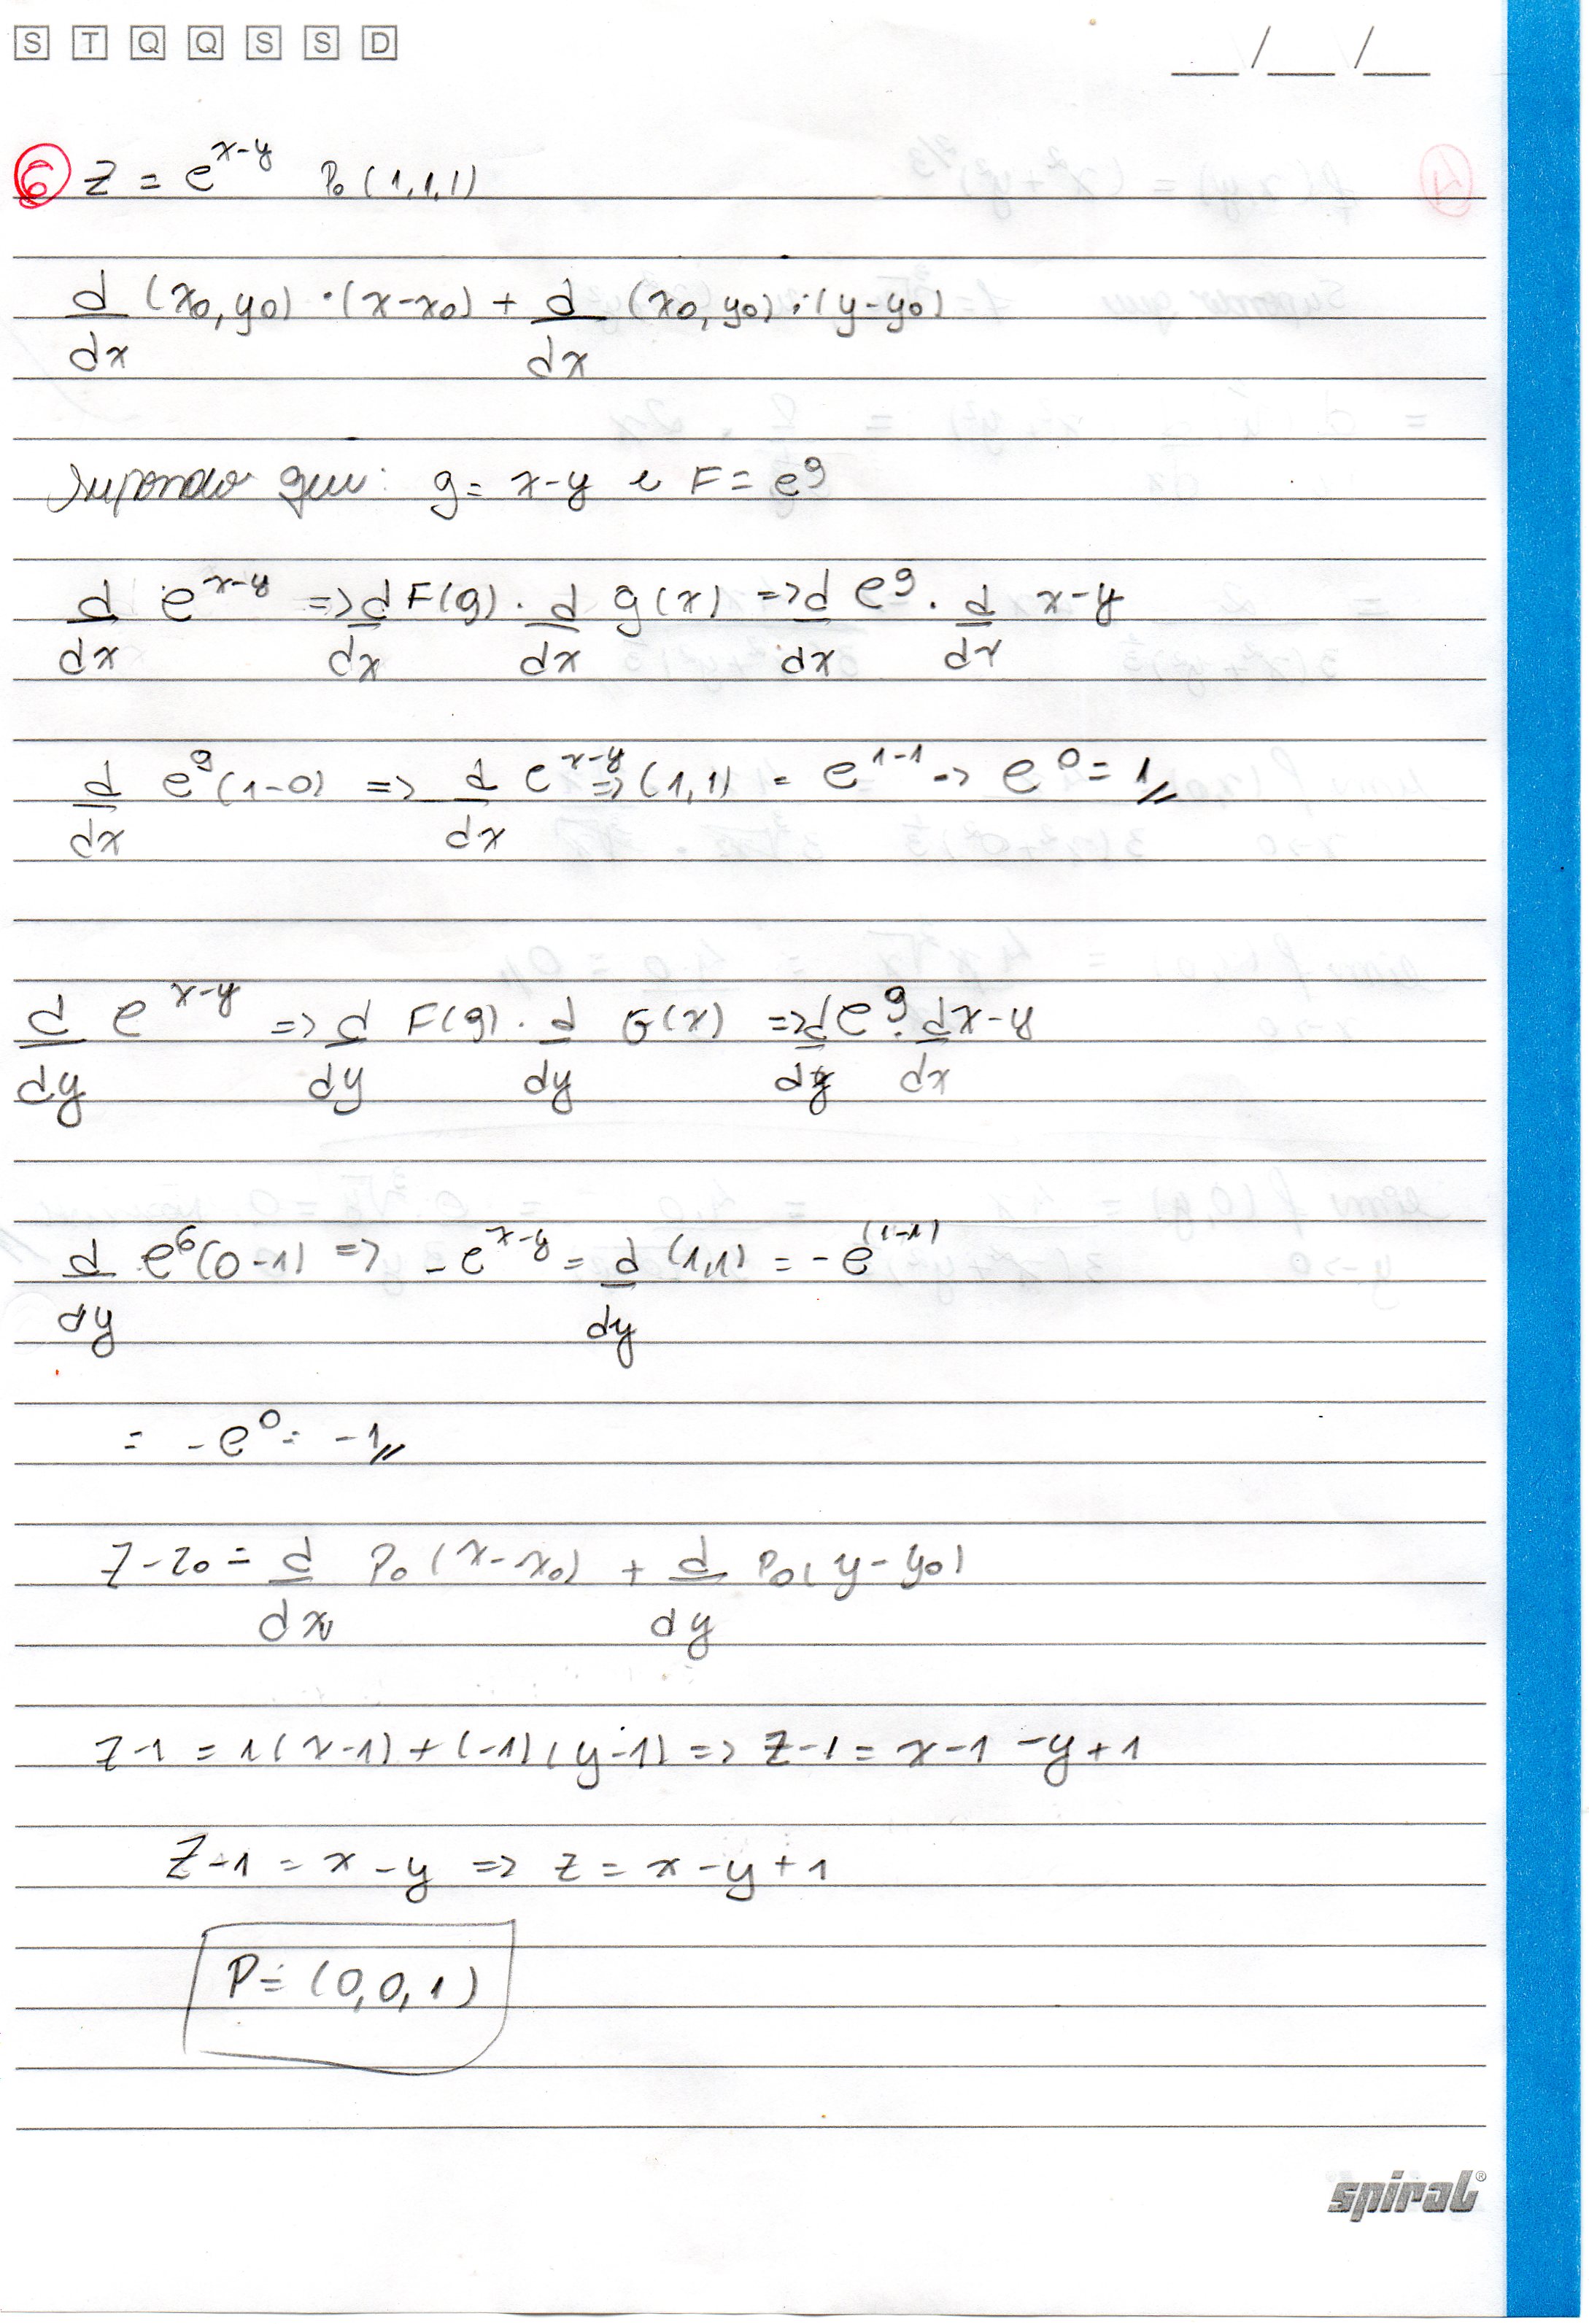 S T Q Q S S D __/__/__
6 z = e^{x-y} P₀(1,1,1)
d/dx (x₀,y₀)·(x-x₀) + d/dx (x₀,y₀)·(y-y₀)
Supondo que: g = x-y e F = e^g
d/dx e^{x-y} => d/dx F(g) · d/dx g(x) => d/dx e^g · d/dx x-y
d/dx e^g(1-0) => d/dx e^{x-y} => (1,1) = e^{1-1} => e^0 = 1//
d/dy e^{x-y} => d/dy F(g) · d/dy G(x) => d/dy e^g · d/dx x-y
d/dy e^G(0-1) => -e^{x-y} = d/dy (1,1) = -e^{(1-1)}
= -e^0 = -1//
z-z₀ = d/dx P₀(x-x₀) + d/dy P₀(y-y₀)
z-1 = 1(x-1)+(-1)(y-1) => z-1 = x-1-y+1
z-1 = x-y => z = x-y+1
P = (0,0,1)
spiral®